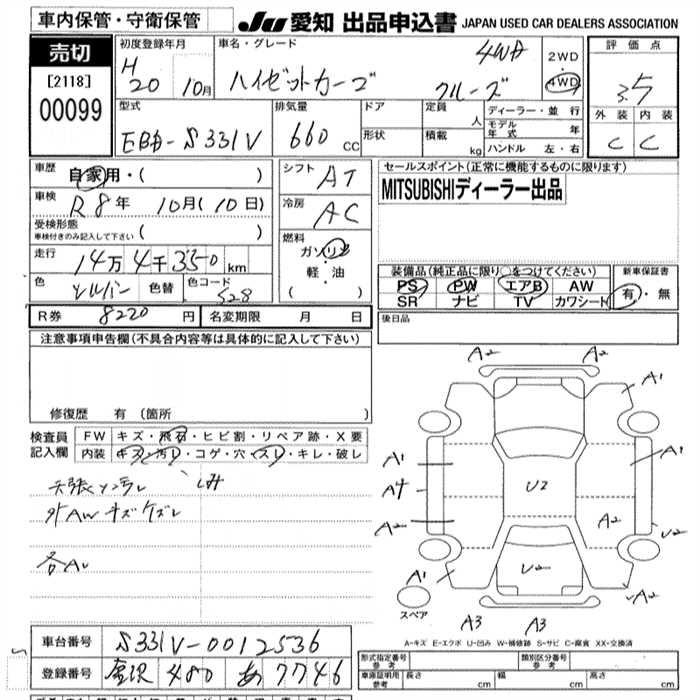 車内保管・守衛保管
JU 愛知 出品申込書 JAPAN USED CAR DEALERS ASSOCIATION
売切
[2118]
00099
初度登録年月
H 20 10月
車名・グレード
ハイゼットカーゴ クルーズ 4WD
2WD
・
4WD
評価点
3.5
外装 内装
C C
型式
EBD-S331V
排気量
660 CC
ドア
形状
定員 人
積載 kg
ディーラー・並行
モデル年式 年
ハンドル 左・右
車歴
自家用・( )
車検
R8年 10月(10日)
受検形態
車検付きのみ記入して下さい ( )
走行
14万4千350 km
色
シルバー
色替
色コード
S28
シフト
AT
冷房
AC
燃料
ガソリン
軽・油
( )
セールスポイント(正常に機能するものに限ります)
MITSUBISHIディーラー出品
装備品(純正品に限り○をつけてください)
PS PW エアB AW
SR ナビ TV カワシート
新車保証書
有・無
R券 8220 円
名変期限 月 日
後日品
注意事項申告欄(不具合内容等は具体的に記入して下さい)
修復歴 有 (箇所 )
検査員記入欄
FW キズ・飛石・ヒビ割・リペア跡・X要
内装 キズ・汚レ・コゲ・穴・スレ・キレ・破レ
天張り汚レ、シミ
外AWキズケズレ
各AU
A2 A2
A1
A1 A1
A4 U2
A2 A2
U2
A1 U2 A2
スペア
A3 A3
A-キズ E-エクボ U-凹み W-補修跡 S-サビ C-腐食 XX-交換済
車台番号
S331V-0012536
登録番号
金沢 480 あ 7746
形式指定番号
参考
類別区分番号
参考
車庫証明用
参考
長さ cm
幅 cm
高さ cm